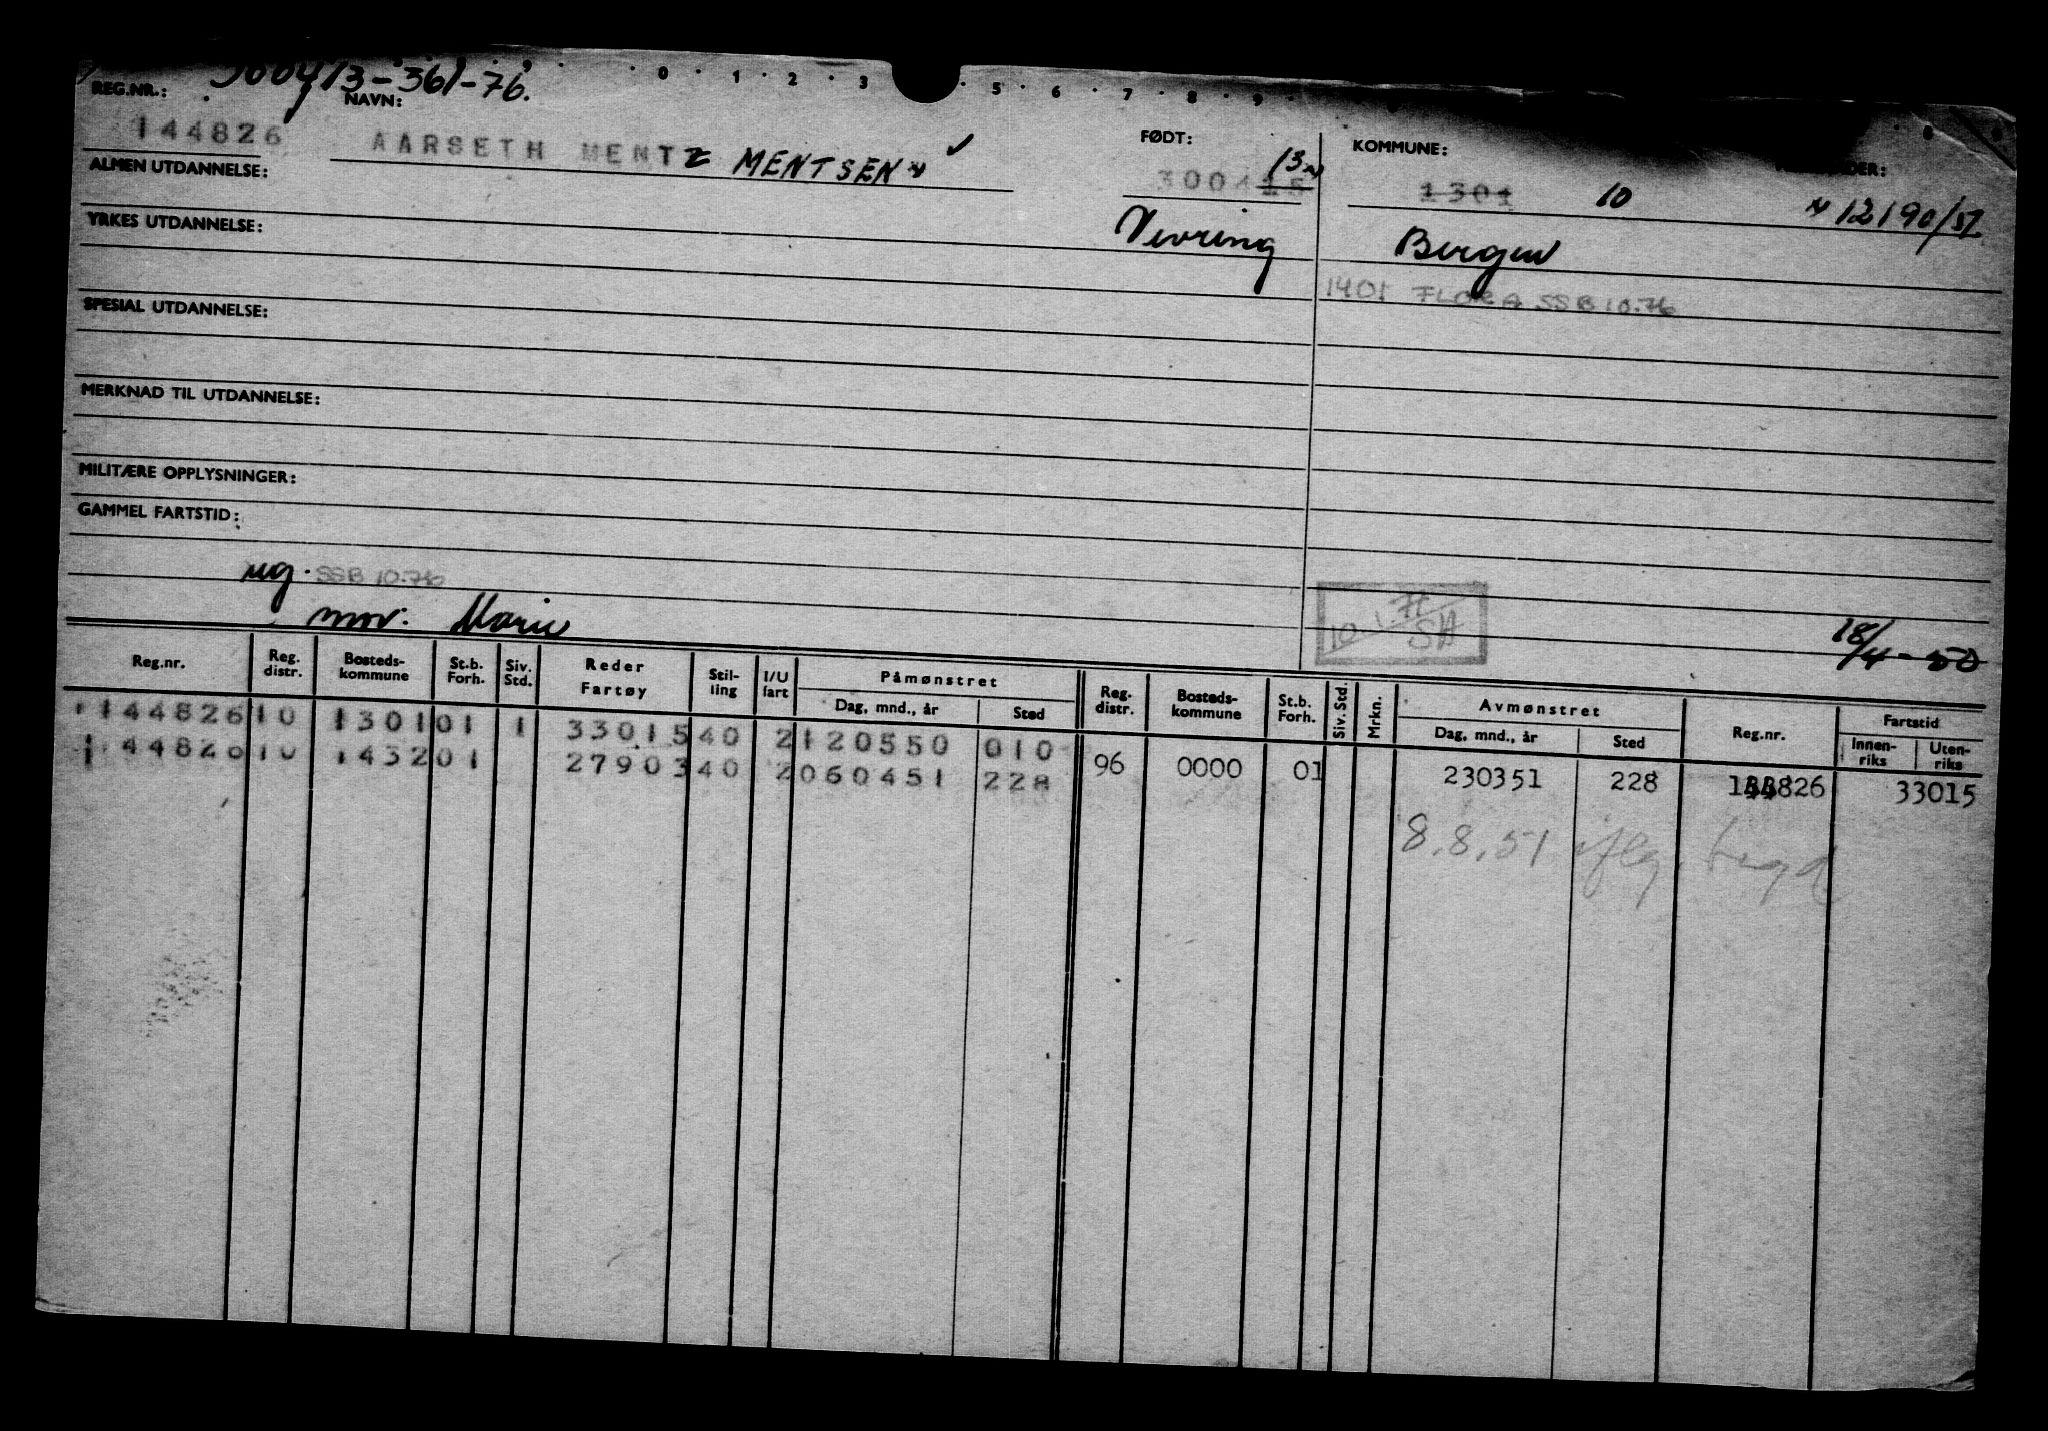 300413-361-76.
0 1 2 3 5 6 7 8 9
REG.NR.: NAVN: FØDT: KOMMUNE:
144826 AARSETH MENTZ MENTSEN ✓ 3004 15 13 1301 10 12190/51
ALMEN UTDANNELSE:
Vevring Bergen
YRKES UTDANNELSE:
1401 FLORA SSB 10.76
SPESIAL UTDANNELSE:
MERKNAD TIL UTDANNELSE:
MILITÆRE OPPLYSNINGER:
GAMMEL FARTSTID:
ug. SSB 10.76
mor: Marie 18/4-50
Reg.nr. Reg. distr. Bosteds-kommune St.b. Forh. Siv. Std. Reder Fartøy Stil-ling I/U fart Påmønstret Dag, mnd., år Sted Reg. distr. Bosteds-kommune St.b. Forh. Siv. Std. Mrkn. Avmønstret Dag, mnd., år Sted Reg.nr. Fartstid Innen-riks Uten-riks
144826 10 1301 01 1 33015 40 2 120550 010 96 0000 01 230351 228 144826 33015
144826 10 1432 01 27903 40 2 060451 228 8.8.51 iflg.